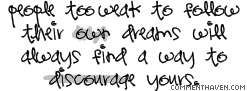 people too weak to follow
their own dreams will
always find a way to
discourage yours.
COMMENTHAVEN.COM